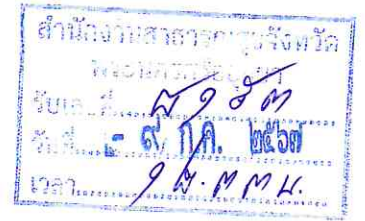 สำนักงานสาธารณสุขจังหวัด
พระนครศรีอยุธยา
รับเลขที่
วันที่ - ๙ ก.ค. ๒๕๖๗
เวลา น.